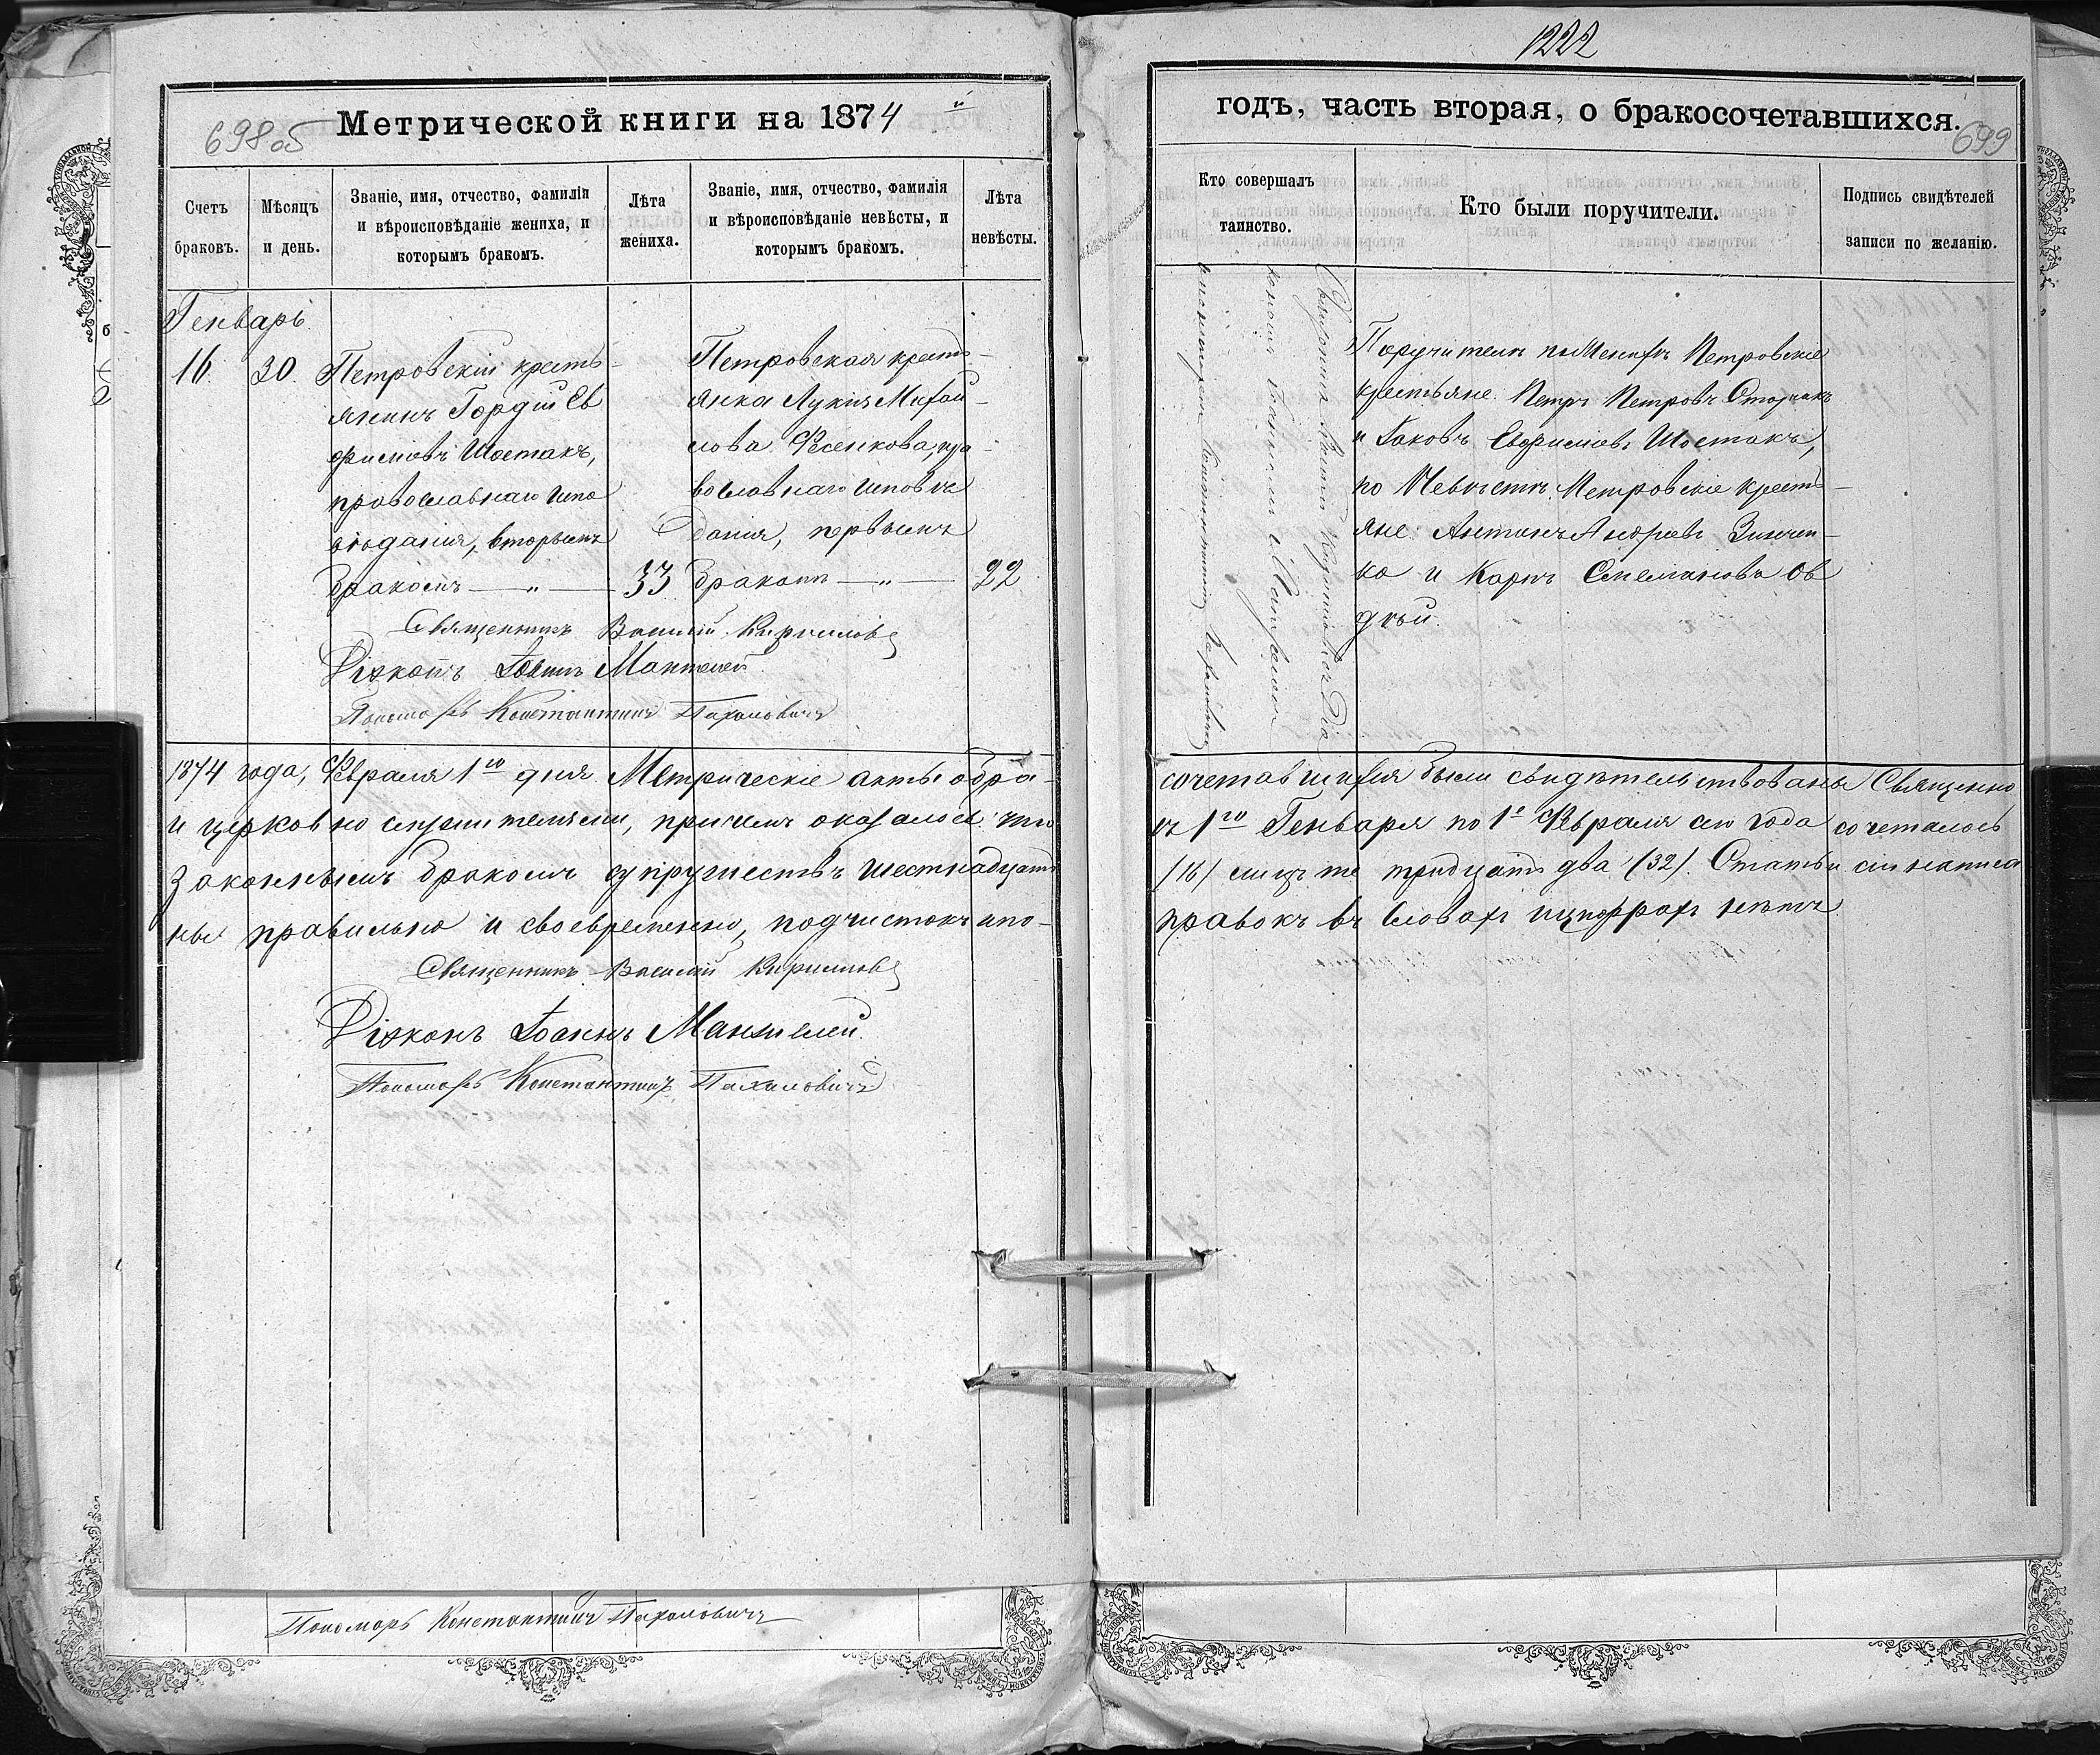 1222
Метрической книги на 1874 й
годъ, часть вторая, о бракосочетавшихся.
698 об
699
Счетъ браковъ.
Мѣсяцъ и день.
Званіе, имя, отчество, фамилія
и вѣроисповѣданіе жениха, и
которымъ бракомъ.
Лѣта
жениха.
Званіе, имя, отчество, фамилія
и вѣроисповѣданіе невѣсты, и
которымъ бракомъ.
Лѣта
невѣсты.
Кто совершалъ
таинство.
Кто были поручители.
Подпись свидѣтелей
записи по желанію.
Генварь
16
30
Петровскій кресть-
янинъ Гордій Ев
фимовъ Шостакъ,
православнаго испо
вѣданія, вторымъ
бракомъ — „ —
33
Петровская кресть-
янка Лукія Михай-
лова Фесенкова, пра-
вославнаго исповѣ
данія, первымъ
бракомъ — „ —
22
Священникъ Василій Кириловъ
Діаконъ Іоаннъ Мантелей
Пономарь Константинъ Пахаловичъ
Священникъ Василій Кириловъ Діа
кономъ Іоанномъ
пономаремъ Константиномъ
Поручители по Женихѣ Петровскіе
крестьяне: Петръ Петровъ
и Іаковъ Евфимовъ Шостакъ,
по Невѣстѣ Петровскіе кресть-
яне: Антонъ Андреевъ Зинчен-
ко и Карпъ Ов
дѣй.
1874 года, Февраля 1го дня Метрическіе акты о бра-
сочетавшихся были свидѣтельствованы Священно
и церковно служителями, причемъ оказалось: что
съ 1го Генваря по 1е Февраля сего года сочеталось
законнымъ бракомъ супружествъ шестнадцать
(16) лицъ же тридцать два (32). Статьи сіи написа
ны правильно и своевременно, подчистокъ и по-
правокъ въ словахъ и цыфрахъ нѣтъ.
Священникъ Василій Кириловъ
Діаконъ Іоаннъ Мантелей.
Пономарь Константинъ Пахаловичъ
Пономарь Константинъ Пахаловичъ